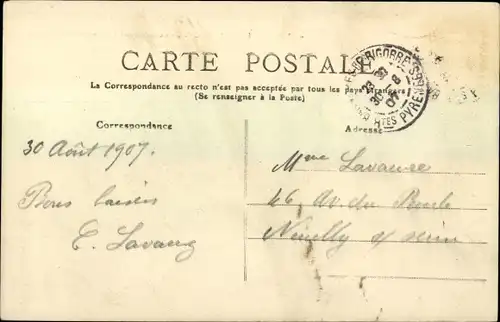 CARTE POSTALE
La Correspondance au recto n'est pas acceptée par tous les pays étrangers
(Se renseigner à la Poste)
Correspondance
Adresse
30 Août 1907.
Bons baisers
Mme
46 Av. du Roule
Neuilly s/ seine
BIGORRE
Htes PYRENEES